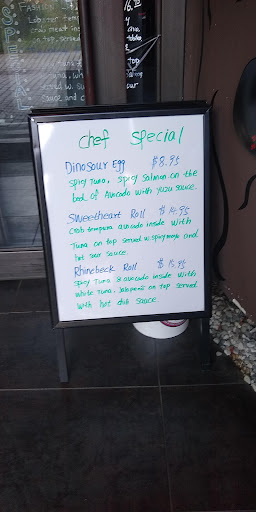 FASHION
Lobster temp
crab meat insi
on top, served
SPECIAL
Chef Special
Dinosour Egg $8.95
spicy Tuna, spicy salmon on the
bed of Avocado with yuzu sauce.
Sweetheart Roll $14.95
Crab tempura avocado inside with
Tuna on top served w. spicy mayo and
hot sour sauce.
Rhinebeck Roll
spicy Tuna & avocado inside with
white Tuna, Jalapeno on top served
with hot chili sauce.